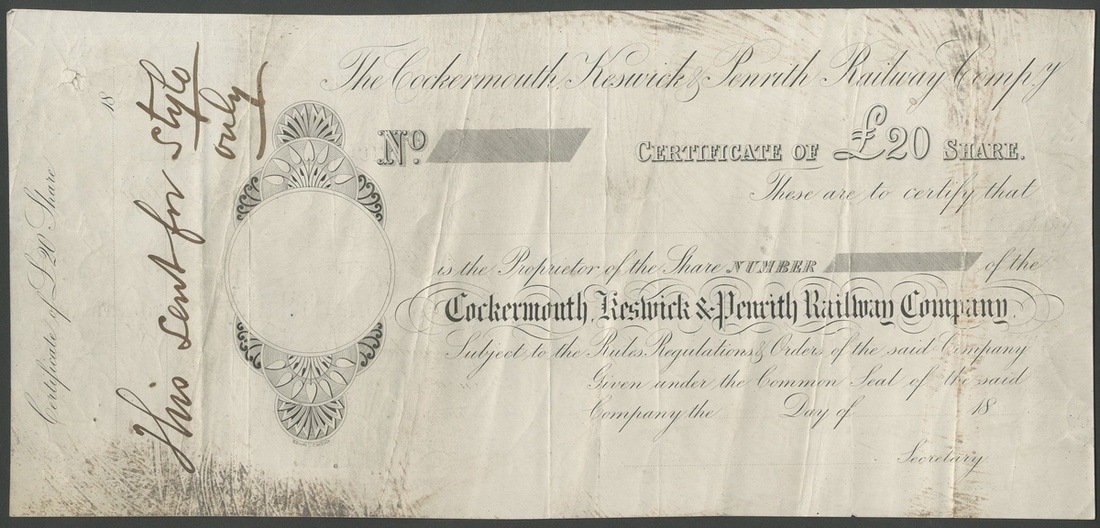 The Cockermouth, Keswick & Penrith Railway Comp.y
No.
CERTIFICATE OF £20 SHARE.
These are to certify that
is the Proprietor of the Share NUMBER of the
Cockermouth, Keswick & Penrith Railway Company,
Subject to the Rules, Regulations & Orders of the said Company
Given under the Common Seal of the said
Company the Day of 18
Secretary
18
Certificate of £20 Share
This sent for style
only